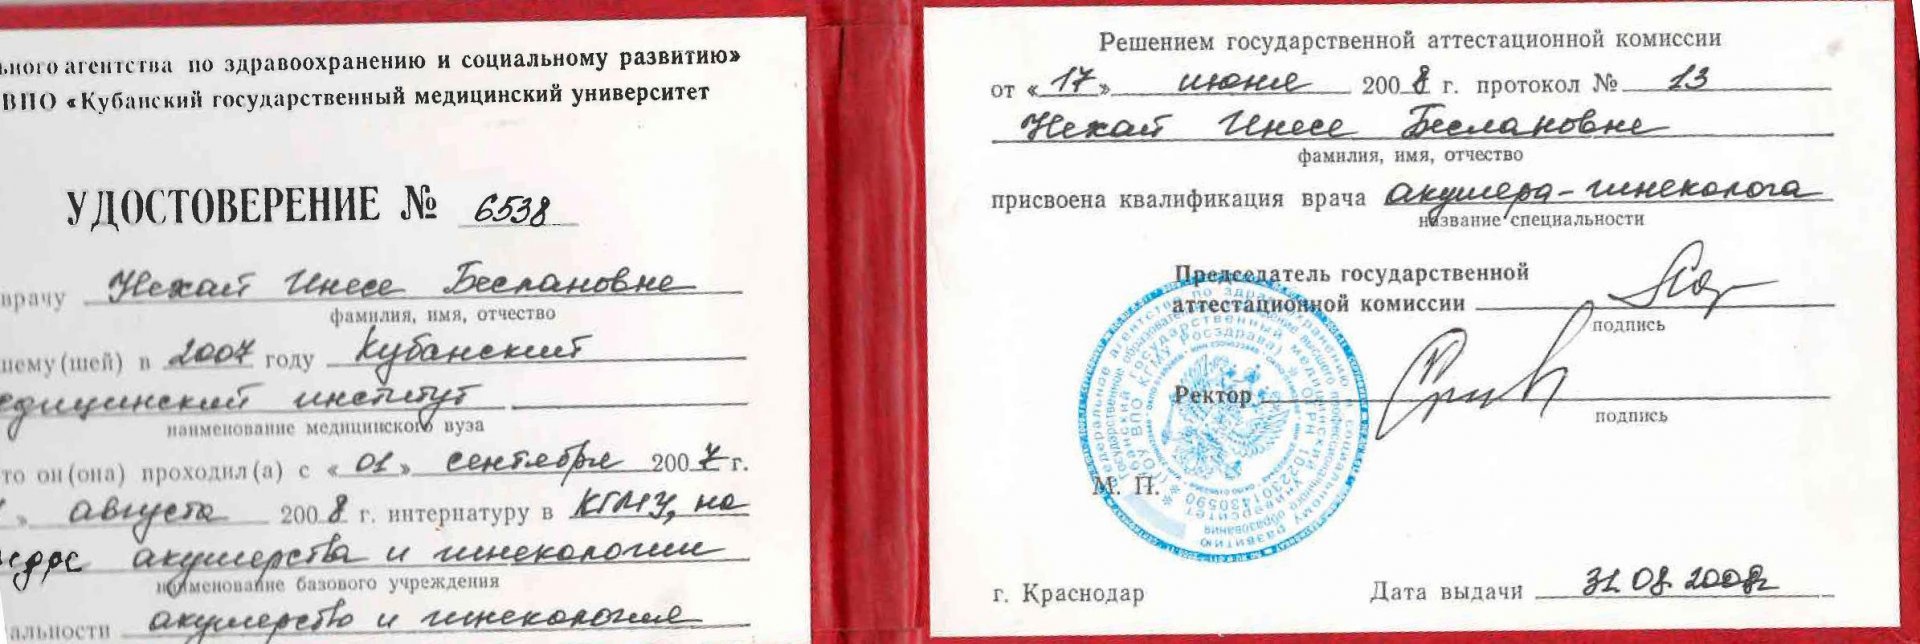 ьного агентства по здравоохранению и социальному развитию»
ВПО «Кубанский государственный медицинский университет
УДОСТОВЕРЕНИЕ № 6538
врачу Нехай Инесе Беслановне
фамилия, имя, отчество
шему(шей) в 2007 году Кубанский
едицинский институт
наименование медицинского вуза
то он(она) проходил(а) с «01» сентября 2007 г.
» августа 2008 г. интернатуру в КГМУ, на
едре акушерства и гинекологии
наименование базового учреждения
альности акушерство и гинекология
Решением государственной аттестационной комиссии
от «17» июня 2008 г. протокол № 13
Нехай Инесе Беслановне
фамилия, имя, отчество
присвоена квалификация врача акушера-гинеколога
название специальности
Председатель государственной
аттестационной комиссии
подпись
Ректор
подпись
М. П.
г. Краснодар Дата выдачи 31.08.2008г